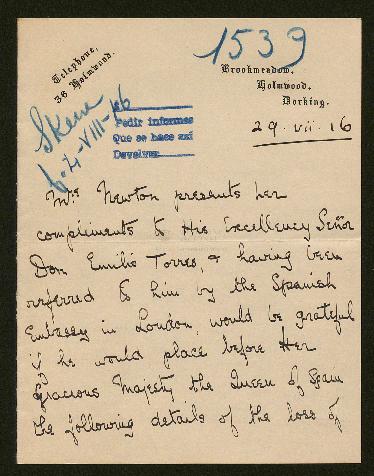 Telephone,
36 Holmwood.
1539
Brookmeadow,
Holmwood,
Dorking.
29. vii. 16
Pedir informes
Que se hace así
Devolver
Mrs Newton presents her
compliments to His Excellency Señor
Don Emilio Torres, & having been
referred to him by the Spanish
Embassy in London, would be grateful
if he would place before Her
Gracious Majesty the Queen of Spain
the following details of the loss of